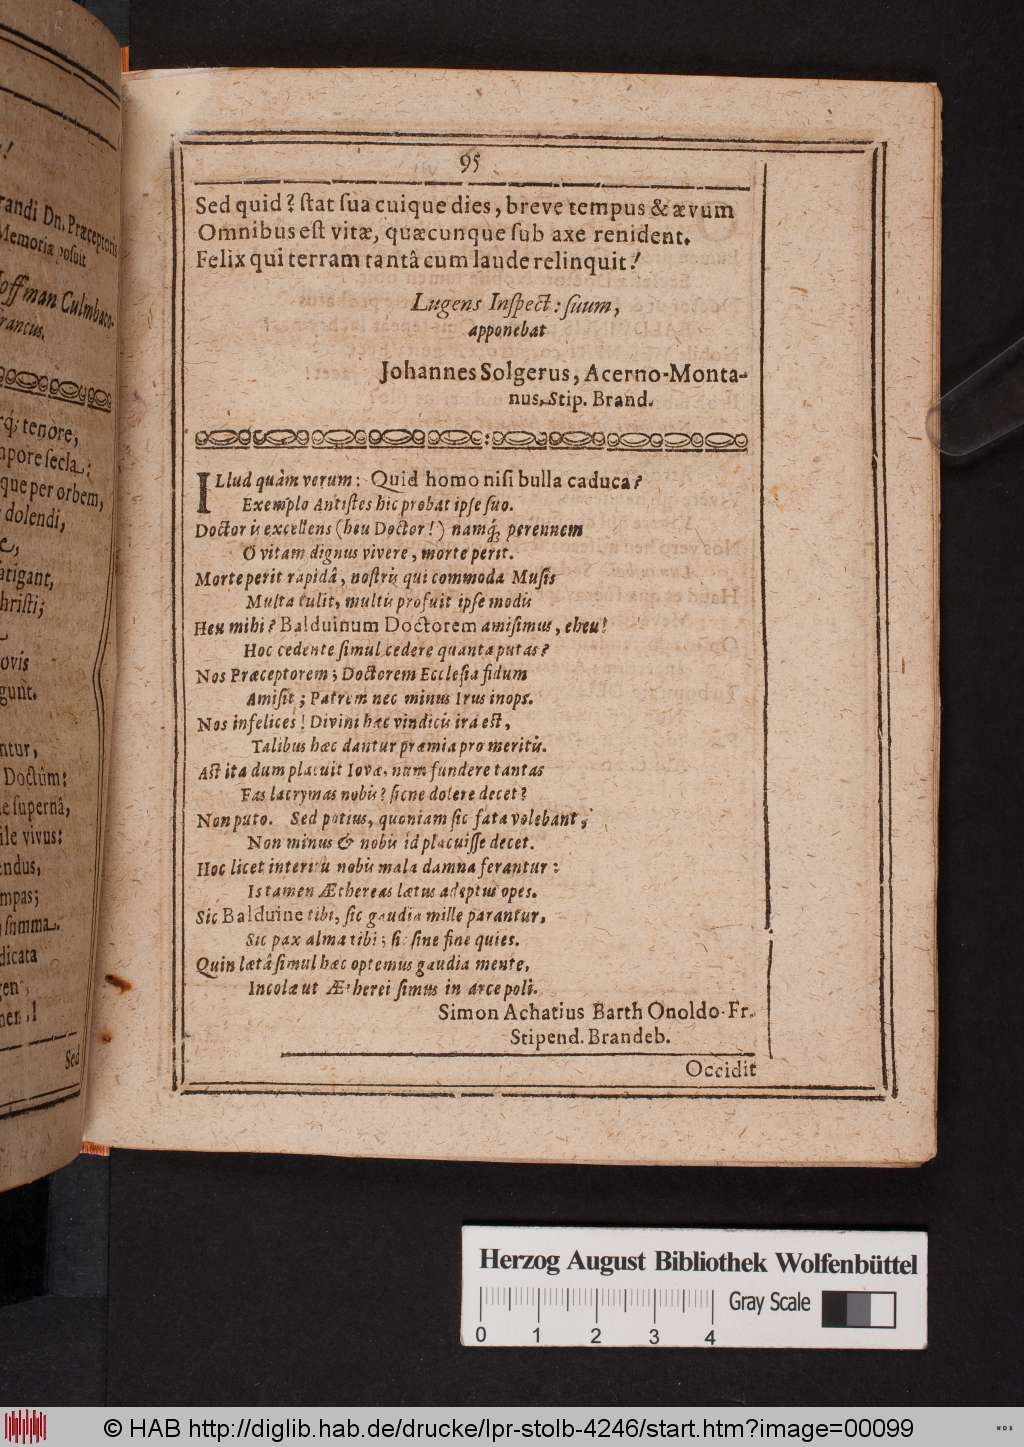 !
randi Dn. Præceptoris
Memoriæ posuit
Hoffman Culmbaco-
Francus.
rq́; tenore,
mpore secla:
que per orbem,
dolendi,
fatigant,
hristi;
ovis
gunt.
ntur,
Doctûm:
e supernâ,
ile vivus:
endus,
mpas;
summa.
dicata
gen,
nen,!
Sed
95
Sed quid? ſtat ſua cuique dies, breve tempus & ævum
Omnibus eſt vitæ, quæcunque ſub axe renident.
Felix qui terram tantâ cum laude relinquit!
Lugens Inſpect: ſuum,
apponebat
Johannes Solgerus, Acerno-Monta-
nus, Stip. Brand.
ILlud quàm verum: Quid homo niſi bulla caduca?
Exemplo Antiſtes hic probat ipſe ſuo.
Doctoris excellens (heu Doctor!) namq́; perennem
O vitam dignus vivere, morte perit.
Morte perit rapidâ, noſtris qui commoda Muſis
Multa tulit, multis profuit ipſe modis
Heu mihi? Balduinum Doctorem amiſimus, eheu!
Hoc cedente ſimul cedere quanta putas?
Nos Præceptorem; Doctorem Eccleſia fidum
Amiſit; Patrem nec minus Irus inops.
Nos infelices! Divini hæc vindicis ira eſt,
Talibus hæc dantur præmia pro meritis.
Aſt ita dum placuit Iovæ, num fundere tantas
Fas lacrymas nobis? ſicne dolere decet?
Non puto. Sed potius, quoniam ſic fata volebant,
Non minus & nobis id placuiſſe decet.
Hoc licet interitu nobis mala damna ferantur:
Is tamen Æthereas lætus adeptus opes.
Sic Balduine tibi, ſic gaudia mille parantur,
Sic pax alma tibi; ſic ſine fine quies.
Quin lætâ ſimul hæc optemus gaudia mente,
Incolæ ut Ætherei ſimus in arce poli.
Simon Achatius Barth Onoldo-Fr.
Stipend. Brandeb.
Occidit
Herzog August Bibliothek Wolfenbüttel
Gray Scale
0 1 2 3 4
© HAB http://diglib.hab.de/drucke/lpr-stolb-4246/start.htm?image=00099